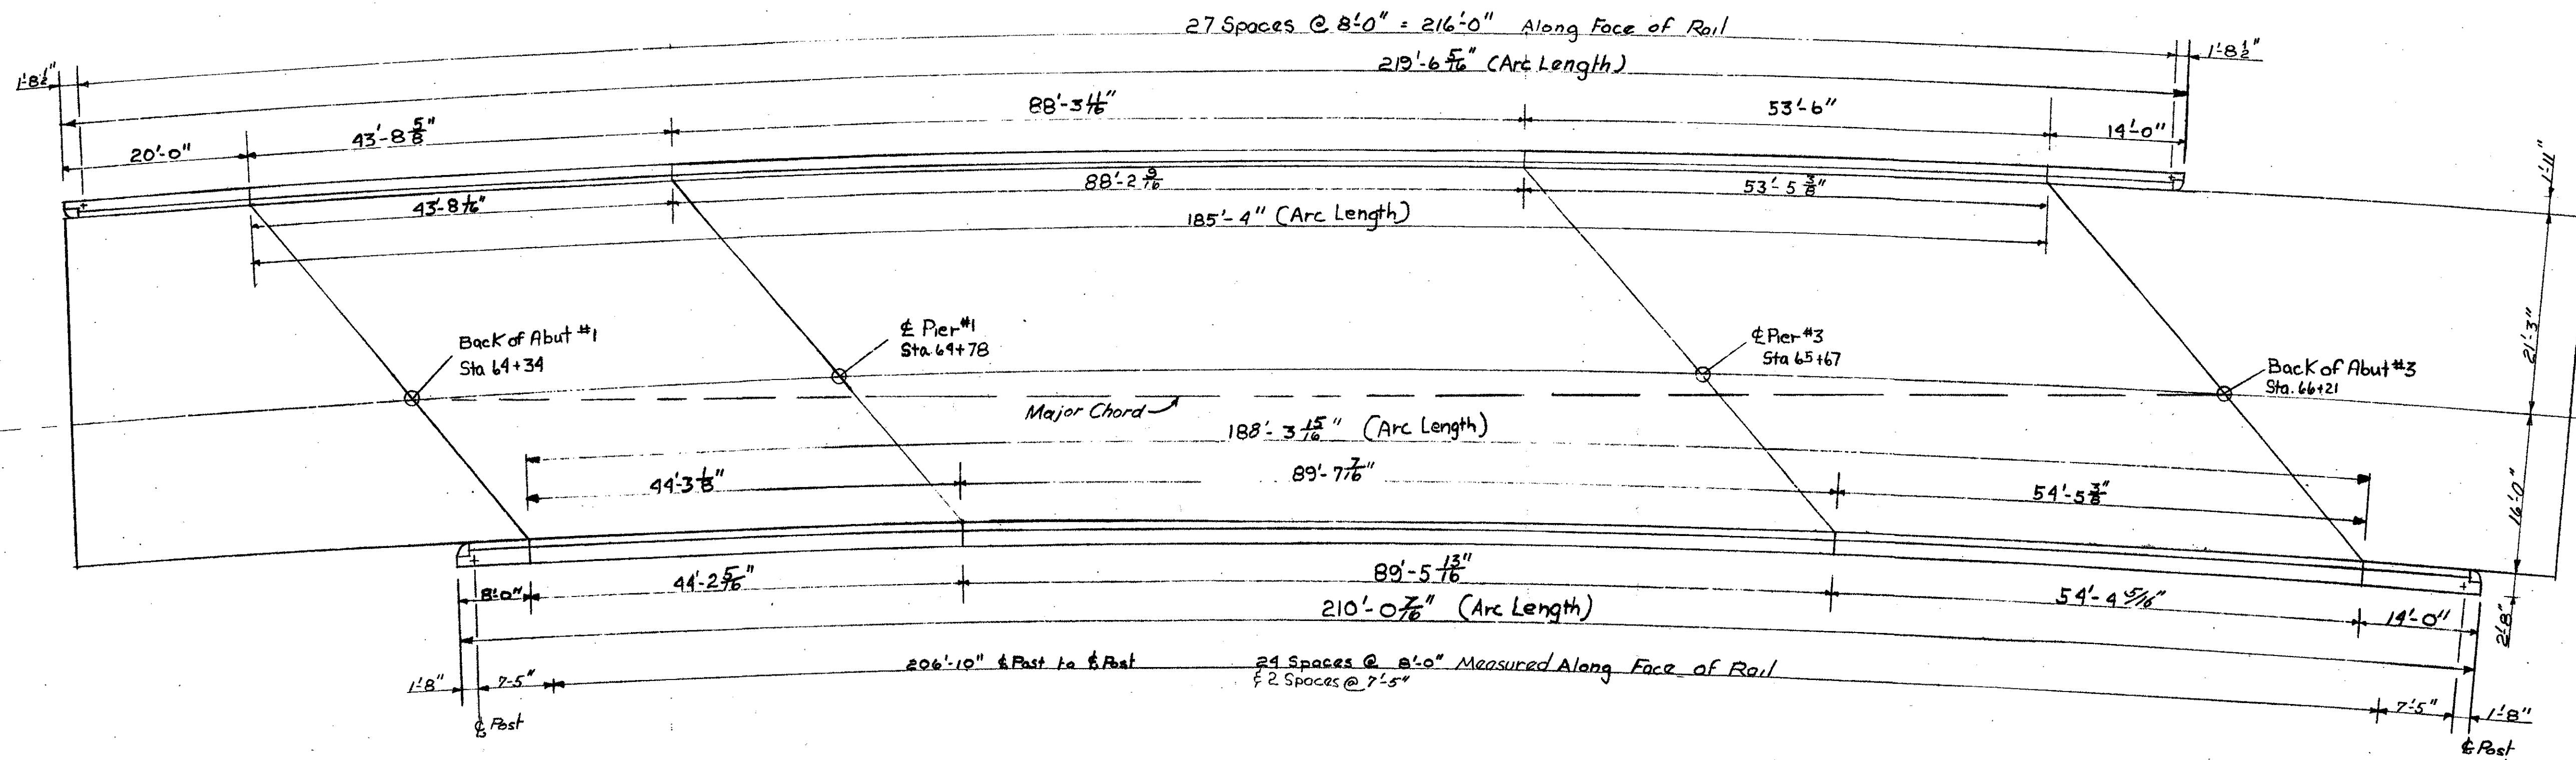 27 Spaces @ 8'-0" = 216'-0" Along Face of Rail
1'-8½"
1'-8½"
219'-6 5/16" (Arc Length)
88'-3 11/16"
53'-6"
43'-8 5/8"
14'-0"
20'-0"
1'-11"
88'-2 9/16
53'-5 3/8"
43'-8 1/16"
185'-4" (Arc Length)
21'-3"
℄ Pier #1
Sta. 64+78
Back of Abut #1
Sta 64+34
℄ Pier #3
Sta 65+67
Back of Abut #3
Sta. 66+21
Major Chord
188'-3 15/16" (Arc Length)
44'-3 1/8"
89'-7 7/16"
54'-5 3/8"
16'-0"
44'-2 5/16"
89'-5 13/16"
8'-0"
54'-4 5/16"
210'-0 7/16" (Arc Length)
14'-0"
2'-8"
206'-10" ℄ Post to ℄ Post
24 Spaces @ 8'-0" Measured Along Face of Rail
& 2 Spaces @ 7'-5"
1'-8"
7'-5"
7'-5"
1'-8"
℄ Post
℄ Post